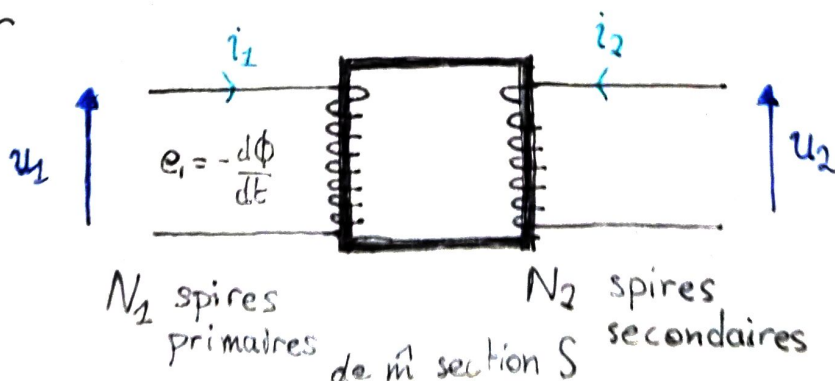 i₁
i₂
u₁
e₁ = -dϕ/dt
u₂
N₁ spires
primaires
N₂ spires
secondaires
de m̂ section S